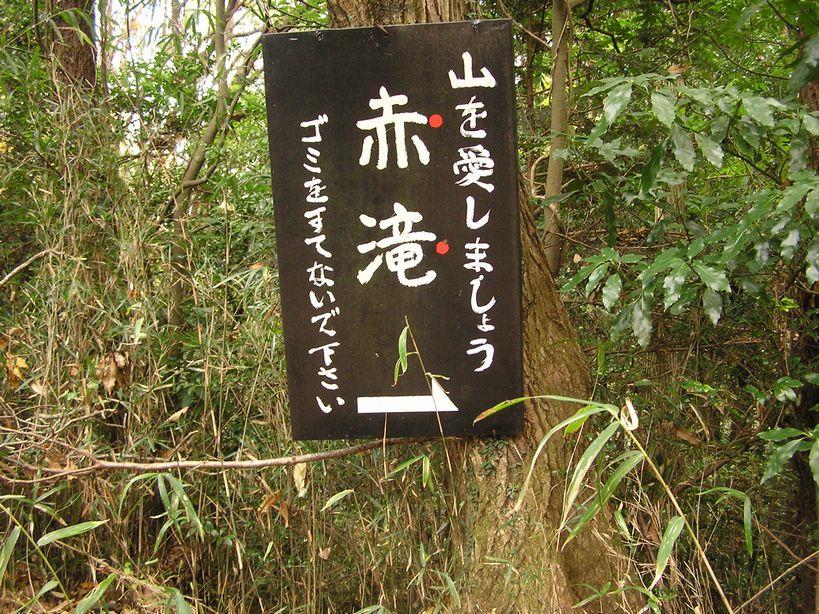 山を愛しましょう
赤滝
ゴミをすてないで下さい